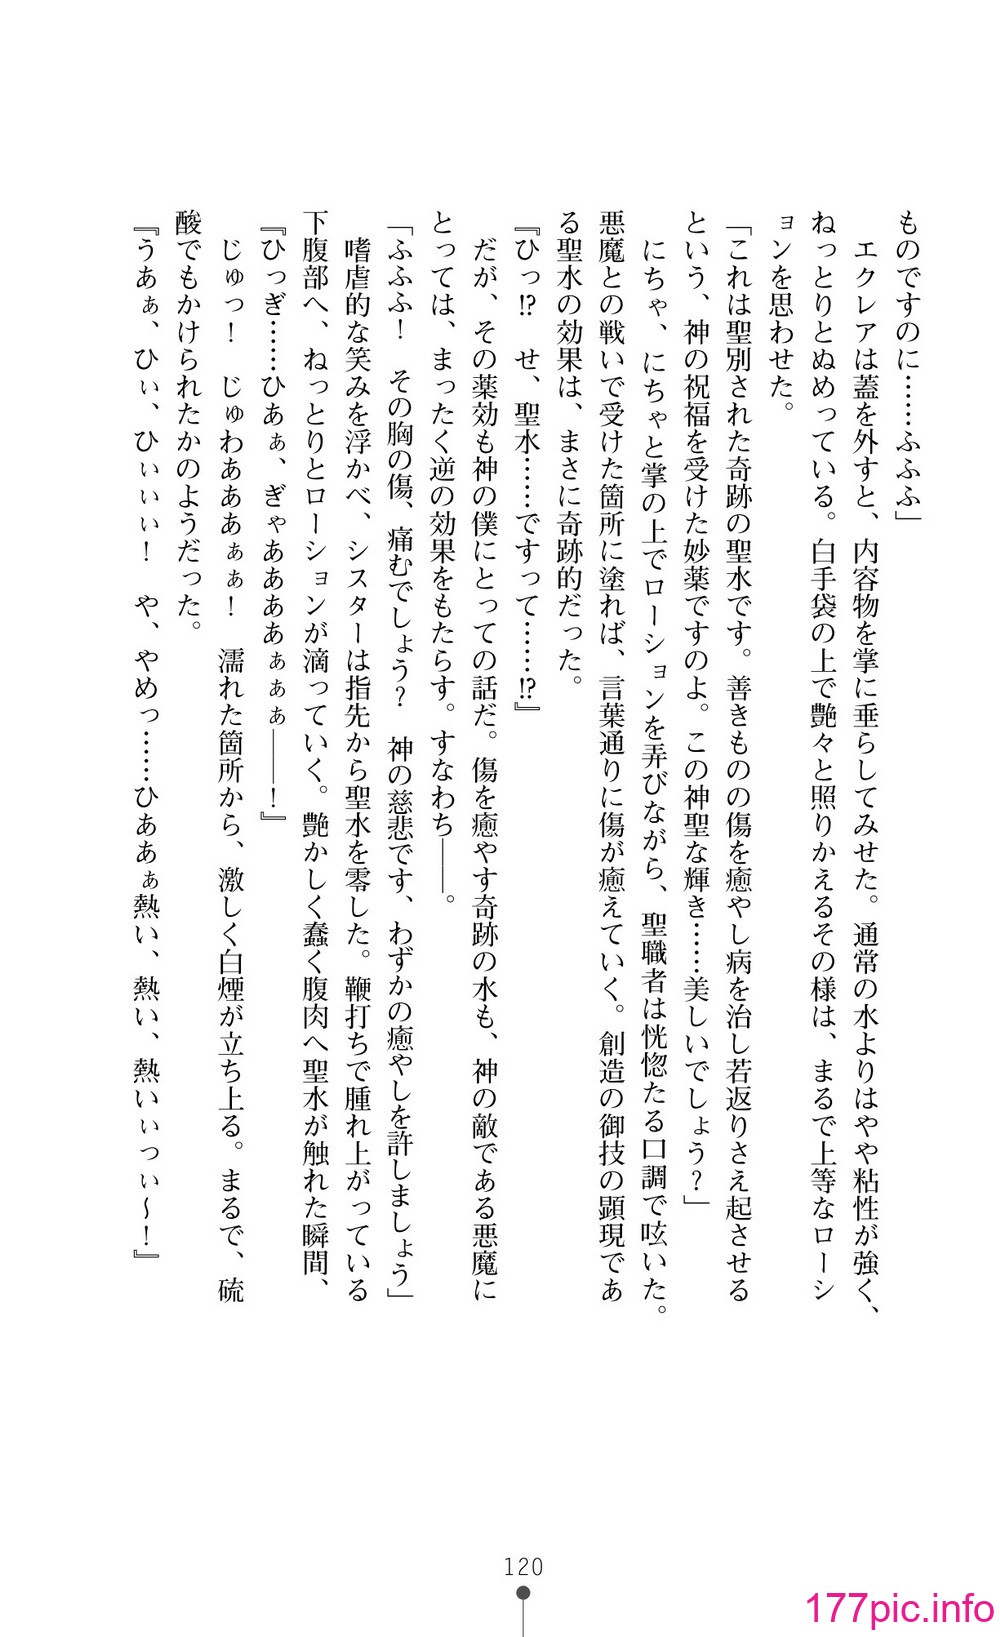 ものですのに……ふふふ」
　エクレアは蓋を外すと、内容物を掌に垂らしてみせた。通常の水よりはやや粘性が強く、
ねっとりとぬめっている。白手袋の上で艶々と照りかえるその様は、まるで上等なローシ
ョンを思わせた。
「これは聖別された奇跡の聖水です。善きものの傷を癒やし病を治し若返りさえ起させる
という、神の祝福を受けた妙薬ですのよ。この神聖な輝き……美しいでしょう？」
　にちゃ、にちゃと掌の上でローションを弄びながら、聖職者は恍惚たる口調で呟いた。
悪魔との戦いで受けた箇所に塗れば、言葉通りに傷が癒えていく。創造の御技の顕現であ
る聖水の効果は、まさに奇跡的だった。
『ひっ!?　せ、聖水……ですって……!?』
　だが、その薬効も神の僕にとっての話だ。傷を癒やす奇跡の水も、神の敵である悪魔に
とっては、まったく逆の効果をもたらす。すなわち――。
「ふふふ！　その胸の傷、痛むでしょう？　神の慈悲です、わずかの癒やしを許しましょう」
　嗜虐的な笑みを浮かべ、シスターは指先から聖水を零した。鞭打ちで腫れ上がっている
下腹部へ、ねっとりとローションが滴っていく。艶かしく蠢く腹肉へ聖水が触れた瞬間、
『ひっぎ……ひあぁ、ぎゃああああぁぁぁ――！』
　じゅっ！　じゅわあああぁぁ！　濡れた箇所から、激しく白煙が立ち上る。まるで、硫
酸でもかけられたかのようだった。
『うあぁ、ひぃ、ひぃぃぃ！　や、やめっ……ひああぁ熱い、熱い、熱いぃっぃ～！』
120
177pic.info